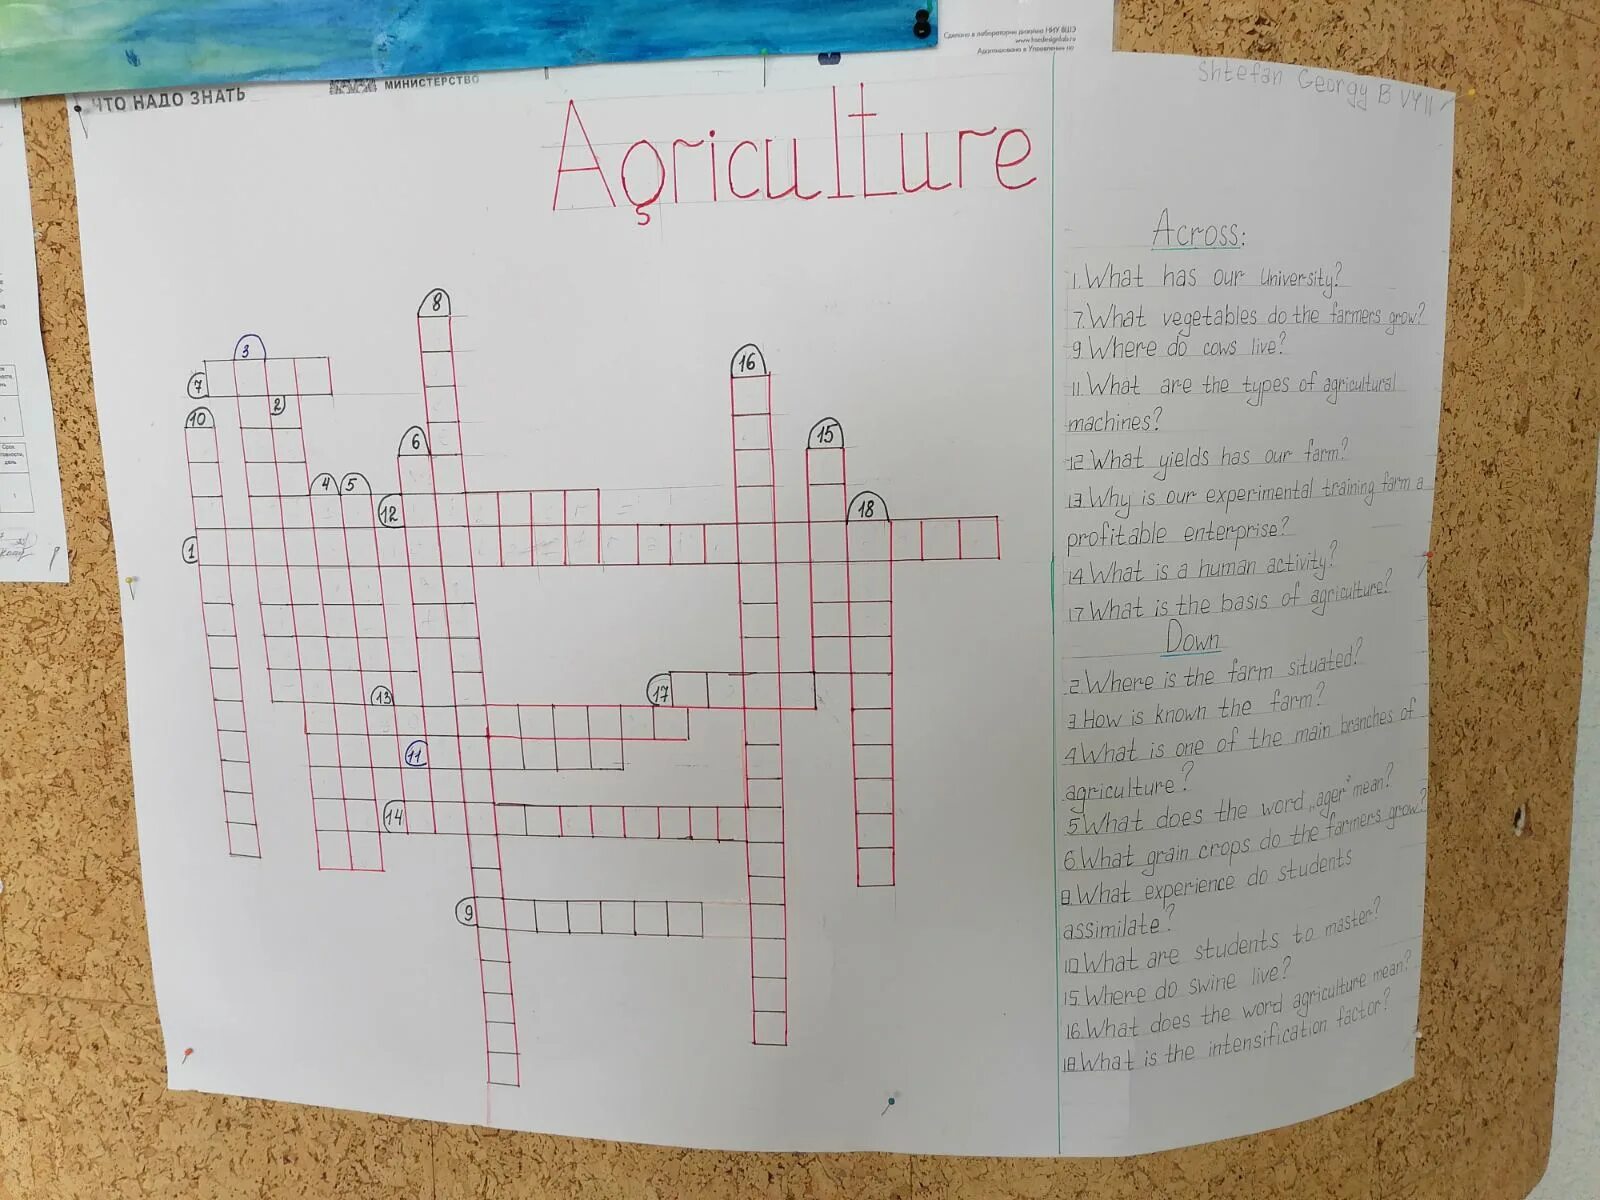 Сделано в лаборатории дизайна НИУ ВШЭ
www.hsedesignlab.ru
Адаптировано в Управлении по
ЧТО НАДО ЗНАТЬ
МИНИСТЕРСТВО
Shtefan Georgy B
Agriculture
8
3
7
2
10
16
6
15
4
5
12
18
1
13
17
11
14
9
Across:
1. What has our university?
7. What vegetables do the farmers grow?
9. Where do cows live?
11. What are the types of agricultural
machines?
12. What yields has our farm?
13. Why is our experimental training farm a
profitable enterprise?
14. What is a human activity?
17. What is the basis of agriculture?
Down
2. Where is the farm situated?
3. How is known the farm?
4. What is one of the main branches of
agriculture?
5. What does the word „ager" mean?
6. What grain crops do the farmers grow?
8. What experience do students
assimilate?
10. What are students to master?
15. Where do swine live?
16. What does the word agriculture mean?
18. What is the intensification factor?